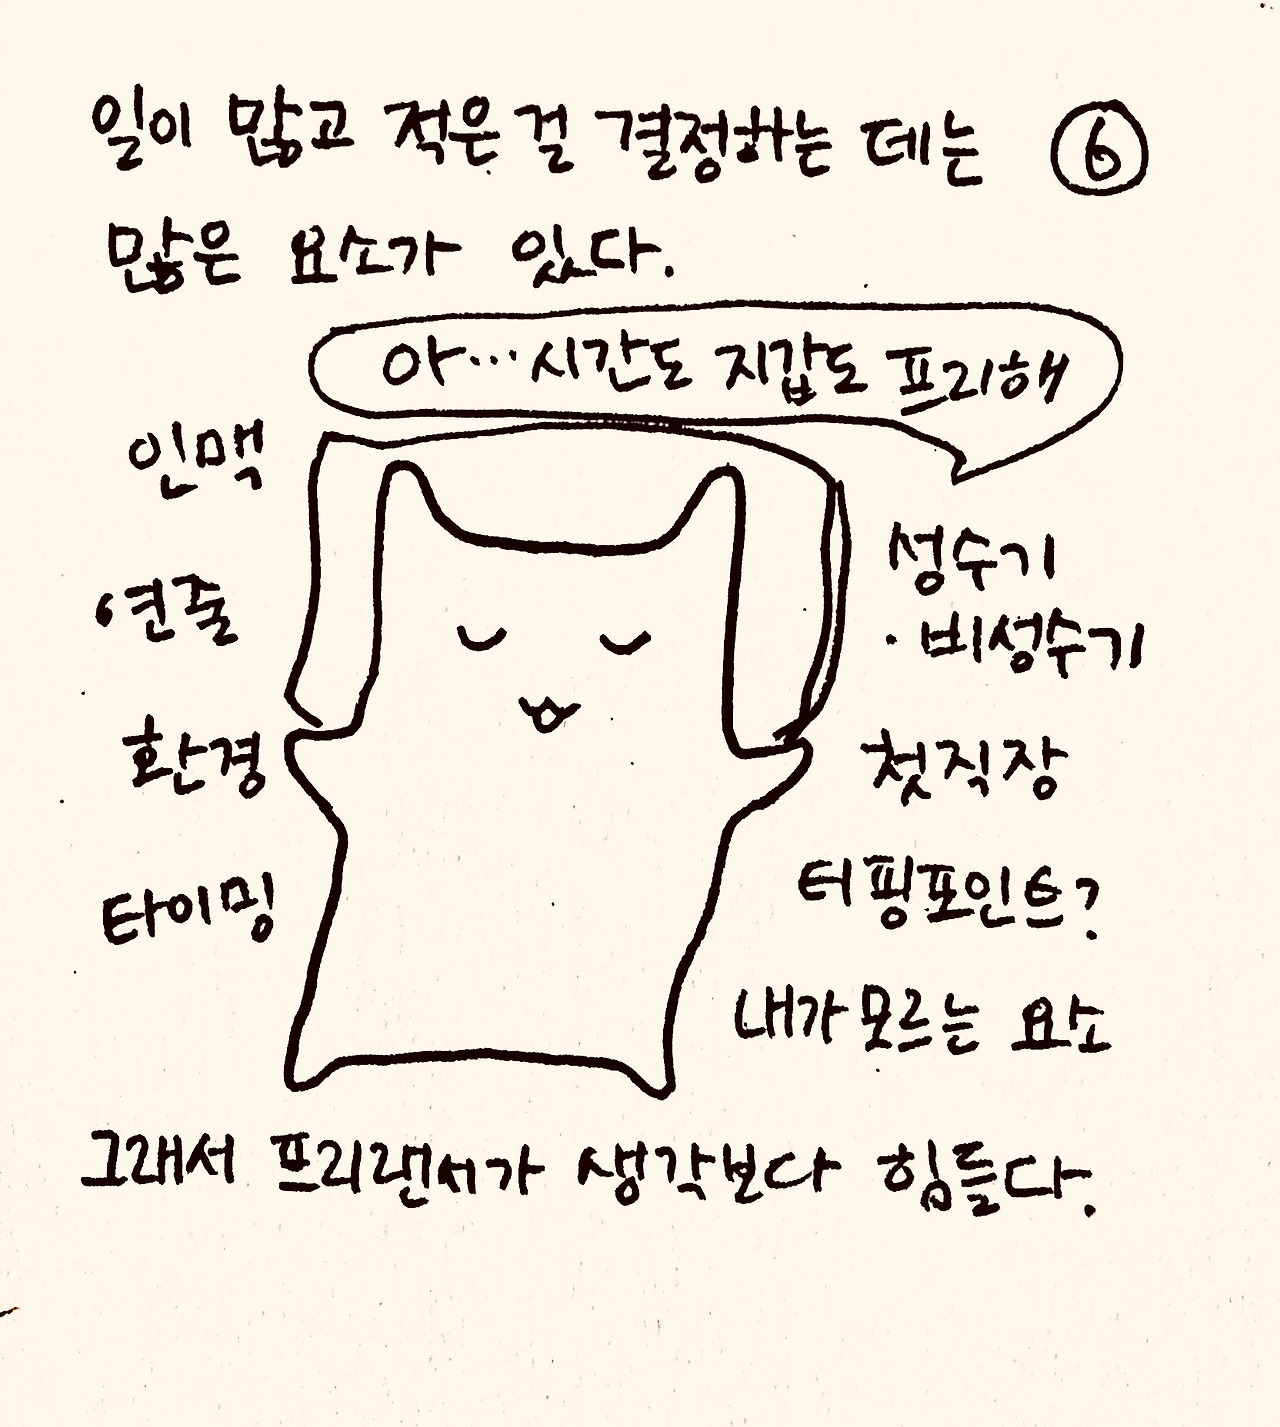 일이 많고 적은 걸 결정하는 데는 ⑥
많은 요소가 있다.
아…시간도 지갑도 프리해
인맥
연줄
환경
타이밍
성수기
·비성수기
첫직장
터핑포인트?
내가 모르는 요소
그래서 프리랜서가 생각보다 힘들다.